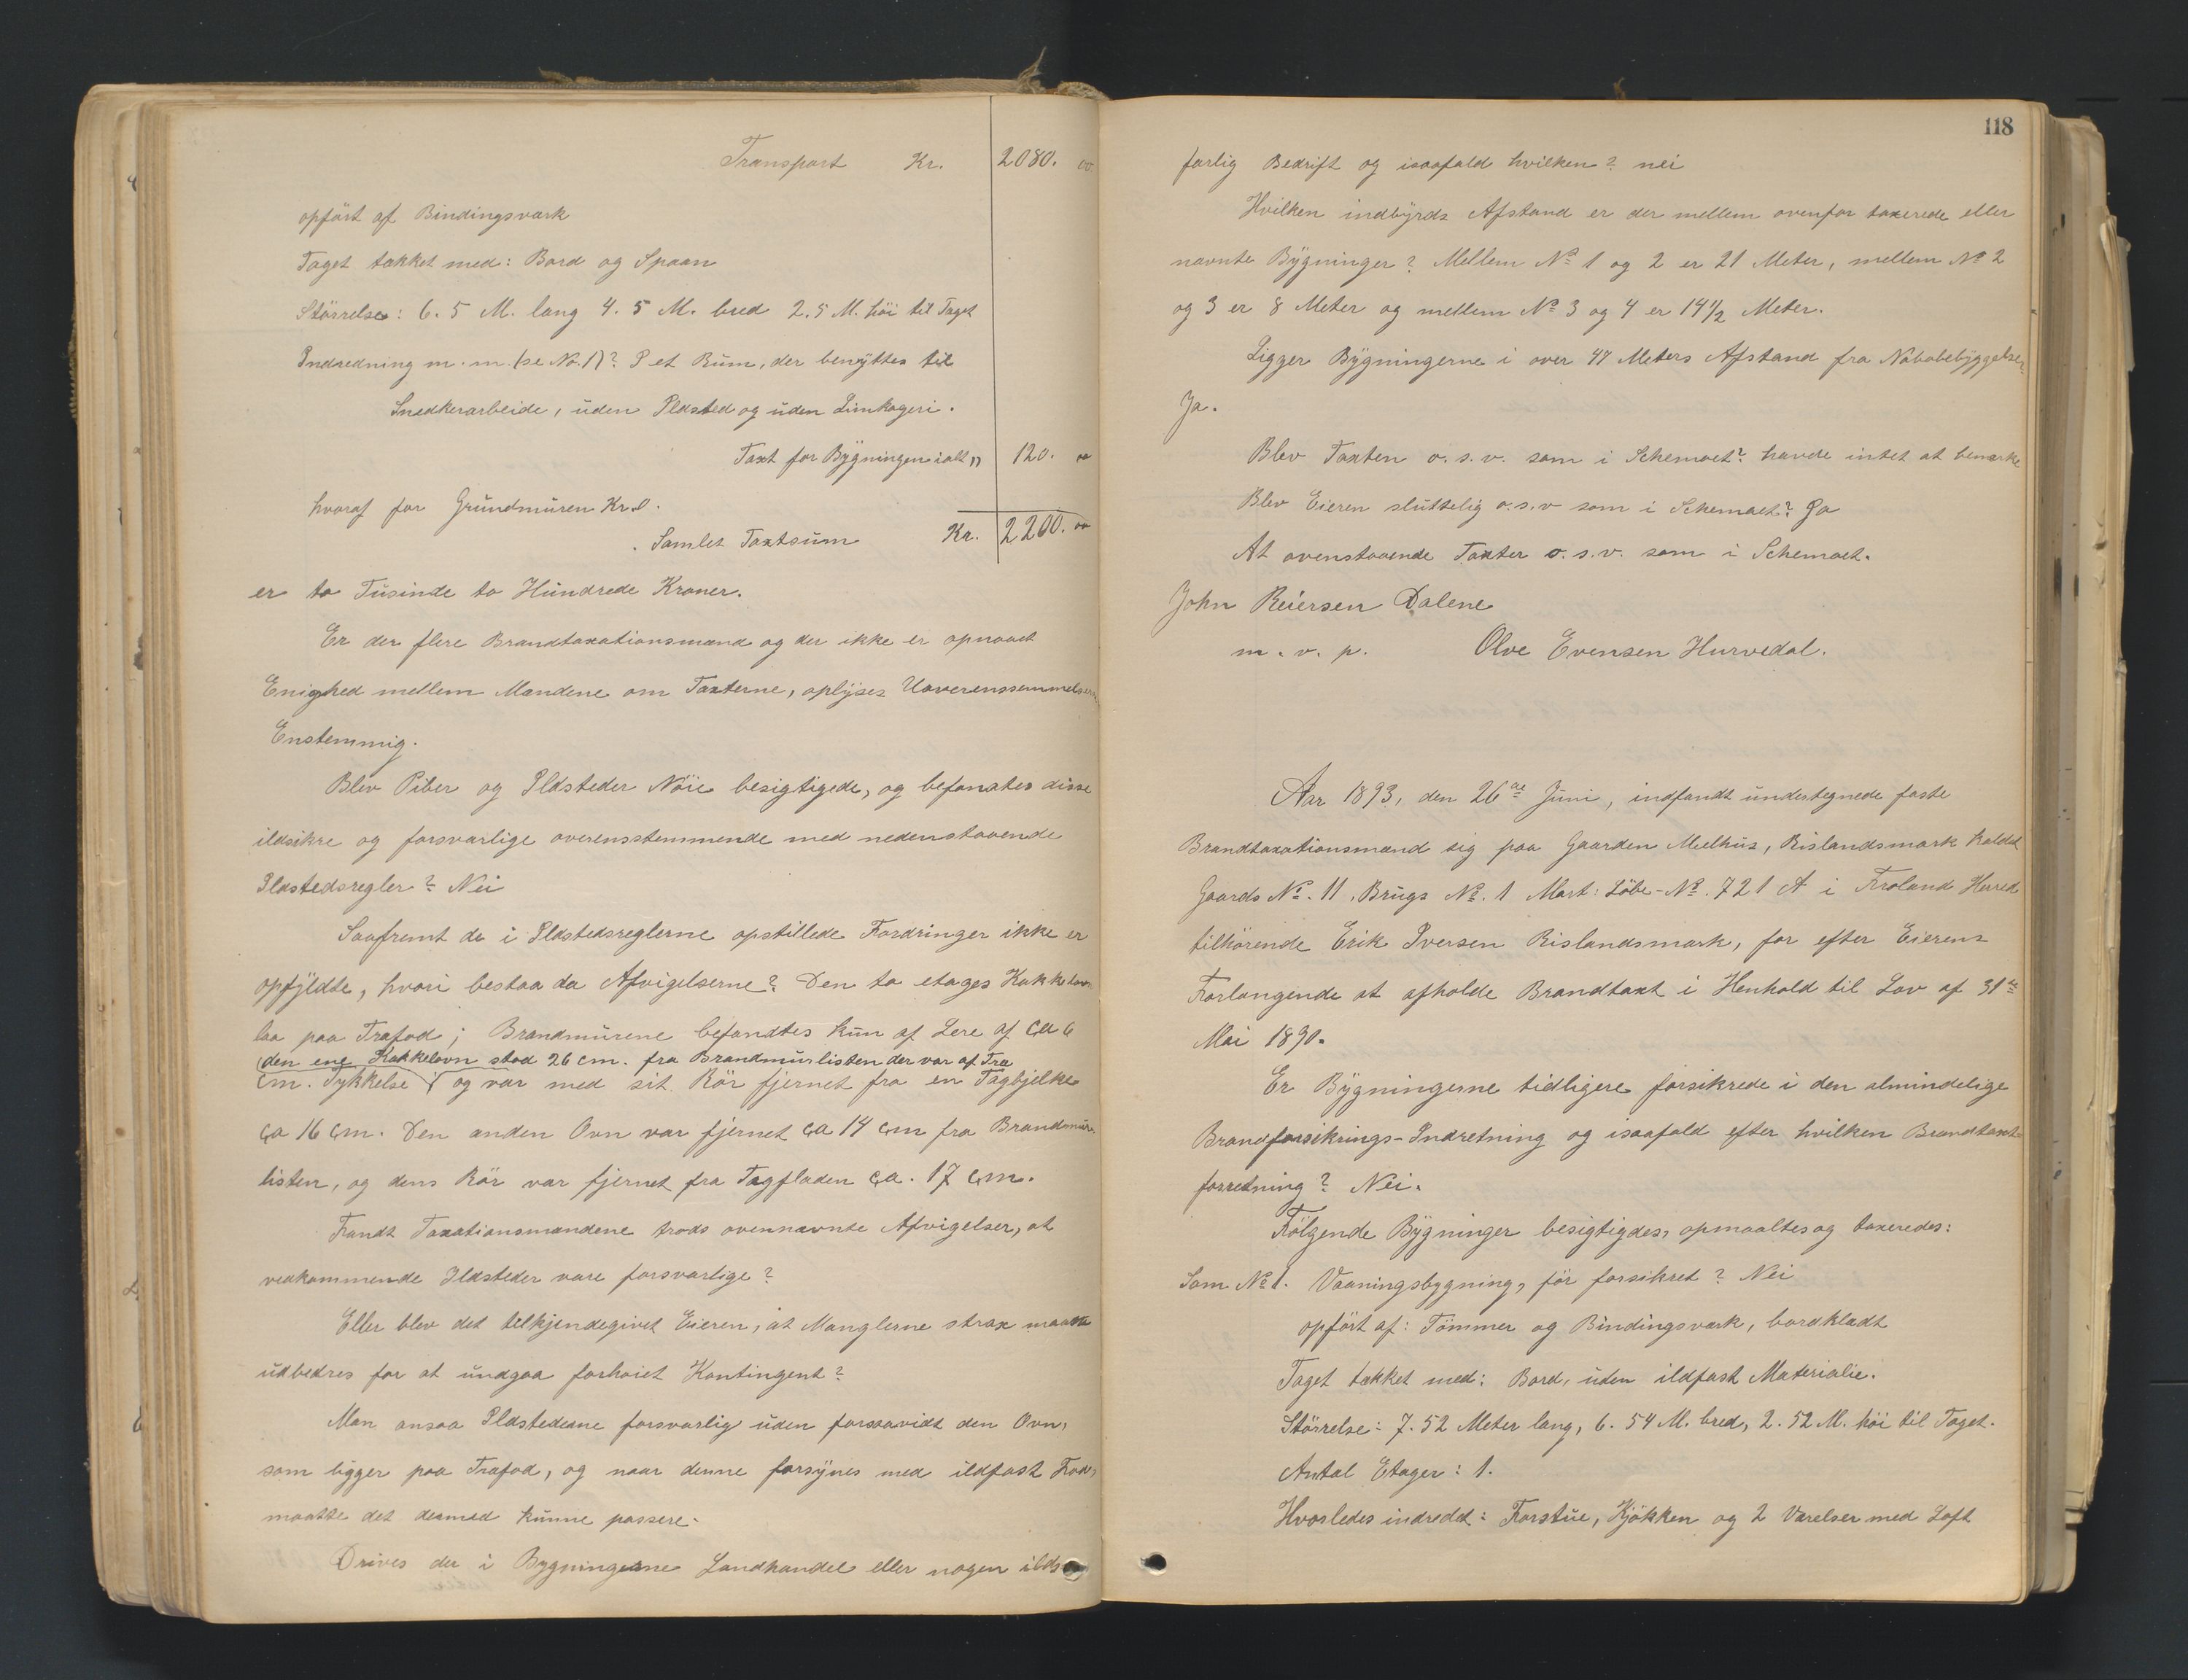 Transport Kr. 2080. 00
opført af Bindingsværk
Taget tækket med: Bord og Spaan
Størrelse: 6.5 M. lang 4.5 M. bred 2.5 M. høi til Taget
Indredning m.m. (se No. 1)? I et Rum, der benyttes til
Snedkerarbeide, uden Ildsted og uden Limkogeri.
Taxt for Bygningen ialt " 120. 00
hvoraf for Grundmuren Kr. 0.
Samlet Taxtsum Kr. 2200. 00
er to Tusinde to Hundrede Kroner.
Er der flere Brandtaxationsmænd og der ikke er opnaaet
Enighed mellem Mændene om Taxterne, oplyses
Enstemmig.
Blev Piber og Ildsteder Nöie besigtigede, og befandtes disse
ildsikre og forsvarlige overensstemmende med nedenstaaende
Ildstedsregler? Nei
Saafremt de i Ildstedsreglerne opstillede Fordringer ikke er
opfyldte, hvori bestaa da Afvigelserne? Den to etages Kakkelovn
laa paa Træfod; Brandmurene befandtes kun af Lere af ca 6
(den ene Kakkelovn stod 26 cm. fra Brandmurlisten der var af Træ
cm. Tykkelse; og var med sit Rör fjernet fra en Tagbjelke
ca 16 cm. Den anden Ovn var fjernet ca 14 cm fra Brandmur-
listen, og dens Rör var fjernet fra Tagfladen ca. 17 cm.
Fandt Taxationsmændene trods ovennævnte Afvigelser, at
vedkommende Ildsteder vare forsvarlige?
Eller blev det tilkjendegivet Eieren, at Manglerne strax maatte
udbedres for at undgaa forhøiet Kontingent?
Man ansaa Ildstederne forsvarlig uden forsaavidt den Ovn,
som ligger paa Træfod, og naar denne forsynes med ildfast Fod,
maatte det dermed kunne passere.
Drives der i Bygningerne Landhandel eller nogen ilds-
118
farlig Bedrift og isaafald hvilken? nei
Hvilken indbyrds Afstand er der mellem ovenfor taxerede eller
nævnte Bygninger? Mellem No 1 og 2 er 21 Meter, mellem No 2
og 3 er 8 Meter og mellem No 3 og 4 er 14 1/2 Meter.
Ligger Bygningerne i over 47 Meters Afstand fra Nabobebyggelse?
Ja.
Blev Taxten o.s.v. som i Schemaet? havde intet at bemærke
Blev Eieren sluttelig o.s.v som i Schemaet? Ja
At ovenstaaende Taxter o.s.v. som i Schemaet.
John Reiersen Dalene
m. v. p. Olve Evensen Hurvedal.
Aar 1893, den 26de Juni, indfandt undertegnede faste
Brandtaxationsmænd sig paa Gaarden Mælhus, Rislandsmark kaldet
Gaards No. 11, Brugs No. 1 Mart: Löbe-No. 721 A i Froland Herred
tilhörende Erik Iversen Rislandsmark, for efter Eierens
Forlangende at afholde Brandtaxt i Henhold til Lov af 31te
Mai 1890.
Er Bygningerne tidligere forsikrede i den almindelige
Brandforsikrings-Indretning og isaafald efter hvilken Brandtaxt-
forretning? Nei.
Fölgende Bygninger besigtigdes, opmaaltes og taxeredes:
Som No 1. Vaaningsbygning, för forsikret? Nei
opfört af: Tömmer og Bindingsværk, bordklædt
Taget tækket med: Bord, uden ildfast Materialie.
Störrelse: 7.52 Meter lang, 6.54 M. bred, 2.52 M. höi til Taget.
Antal Etager: 1.
Hvorledes indredet: Forstue, Kjökken og 2 Værelser med Loft